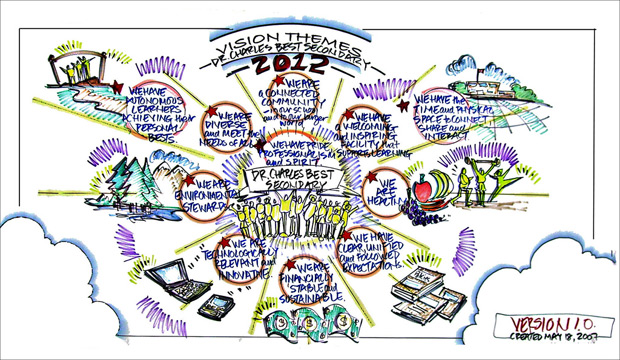 VISION THEMES
DR. CHARLES BEST SECONDARY
2012
WE HAVE
AUTONOMOUS
LEARNERS
ACHIEVING their
PERSONAL
BESTS.
WE ARE
DIVERSE
and MEET the
NEEDS of ALL
WE ARE
A CONNECTED
COMMUNITY
in our school
and to our larger
world
WE HAVE
A WELCOMING
and INSPIRING
FACILITY that
SUPPORTS LEARNING
WE HAVE the
TIME and PHYSICAL
SPACE to CONNECT
SHARE and
INTERACT
WE HAVE PRIDE
PROFESSIONALISM
and SPIRIT
DR. CHARLES BEST
SECONDARY
WE ARE
ENVIRONMENTAL
STEWARDS
WE
ARE
HEALTHY
WE ARE
TECHNOLOGICALLY
RELEVANT and
INNOVATIVE.
WE ARE
FINANCIALLY
STABLE and
SUSTAINABLE.
WE HAVE
CLEAR, UNIFIED
and FOLLOWED
EXPECTATIONS.
$ $ $
VERSION 1.0.
CREATED MAY 18, 2007